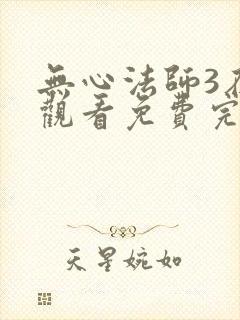 無心法師3
觀看免費完
天星婉如